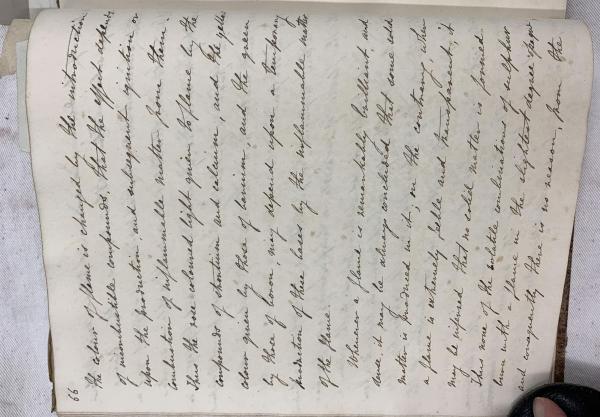 66
The colour of flame is changed by the introduction
of incombustible compounds, that the effect depends
upon the production, and subsequent ignition or
combustion of inflammable matter from them.
Thus the rose coloured light given to flame by the
compounds of strontium and calcium, and the yellow
colour given by those of barium, and the green
by those of boron, may depend upon a temporary
production of these bases by the inflammable matter
of the flame.
Whenever a flame is remarkably brilliant, and
dense, it may be always concluded that some solid
matter is produced in it; on the contrary, when
a flame is extremely feeble and transparent, it
may be inferred that no solid matter is formed.
Thus none of the volatile combinations of sulphur
burn with a flame in the slightest degree opaque
and consequently there is no reason, from the